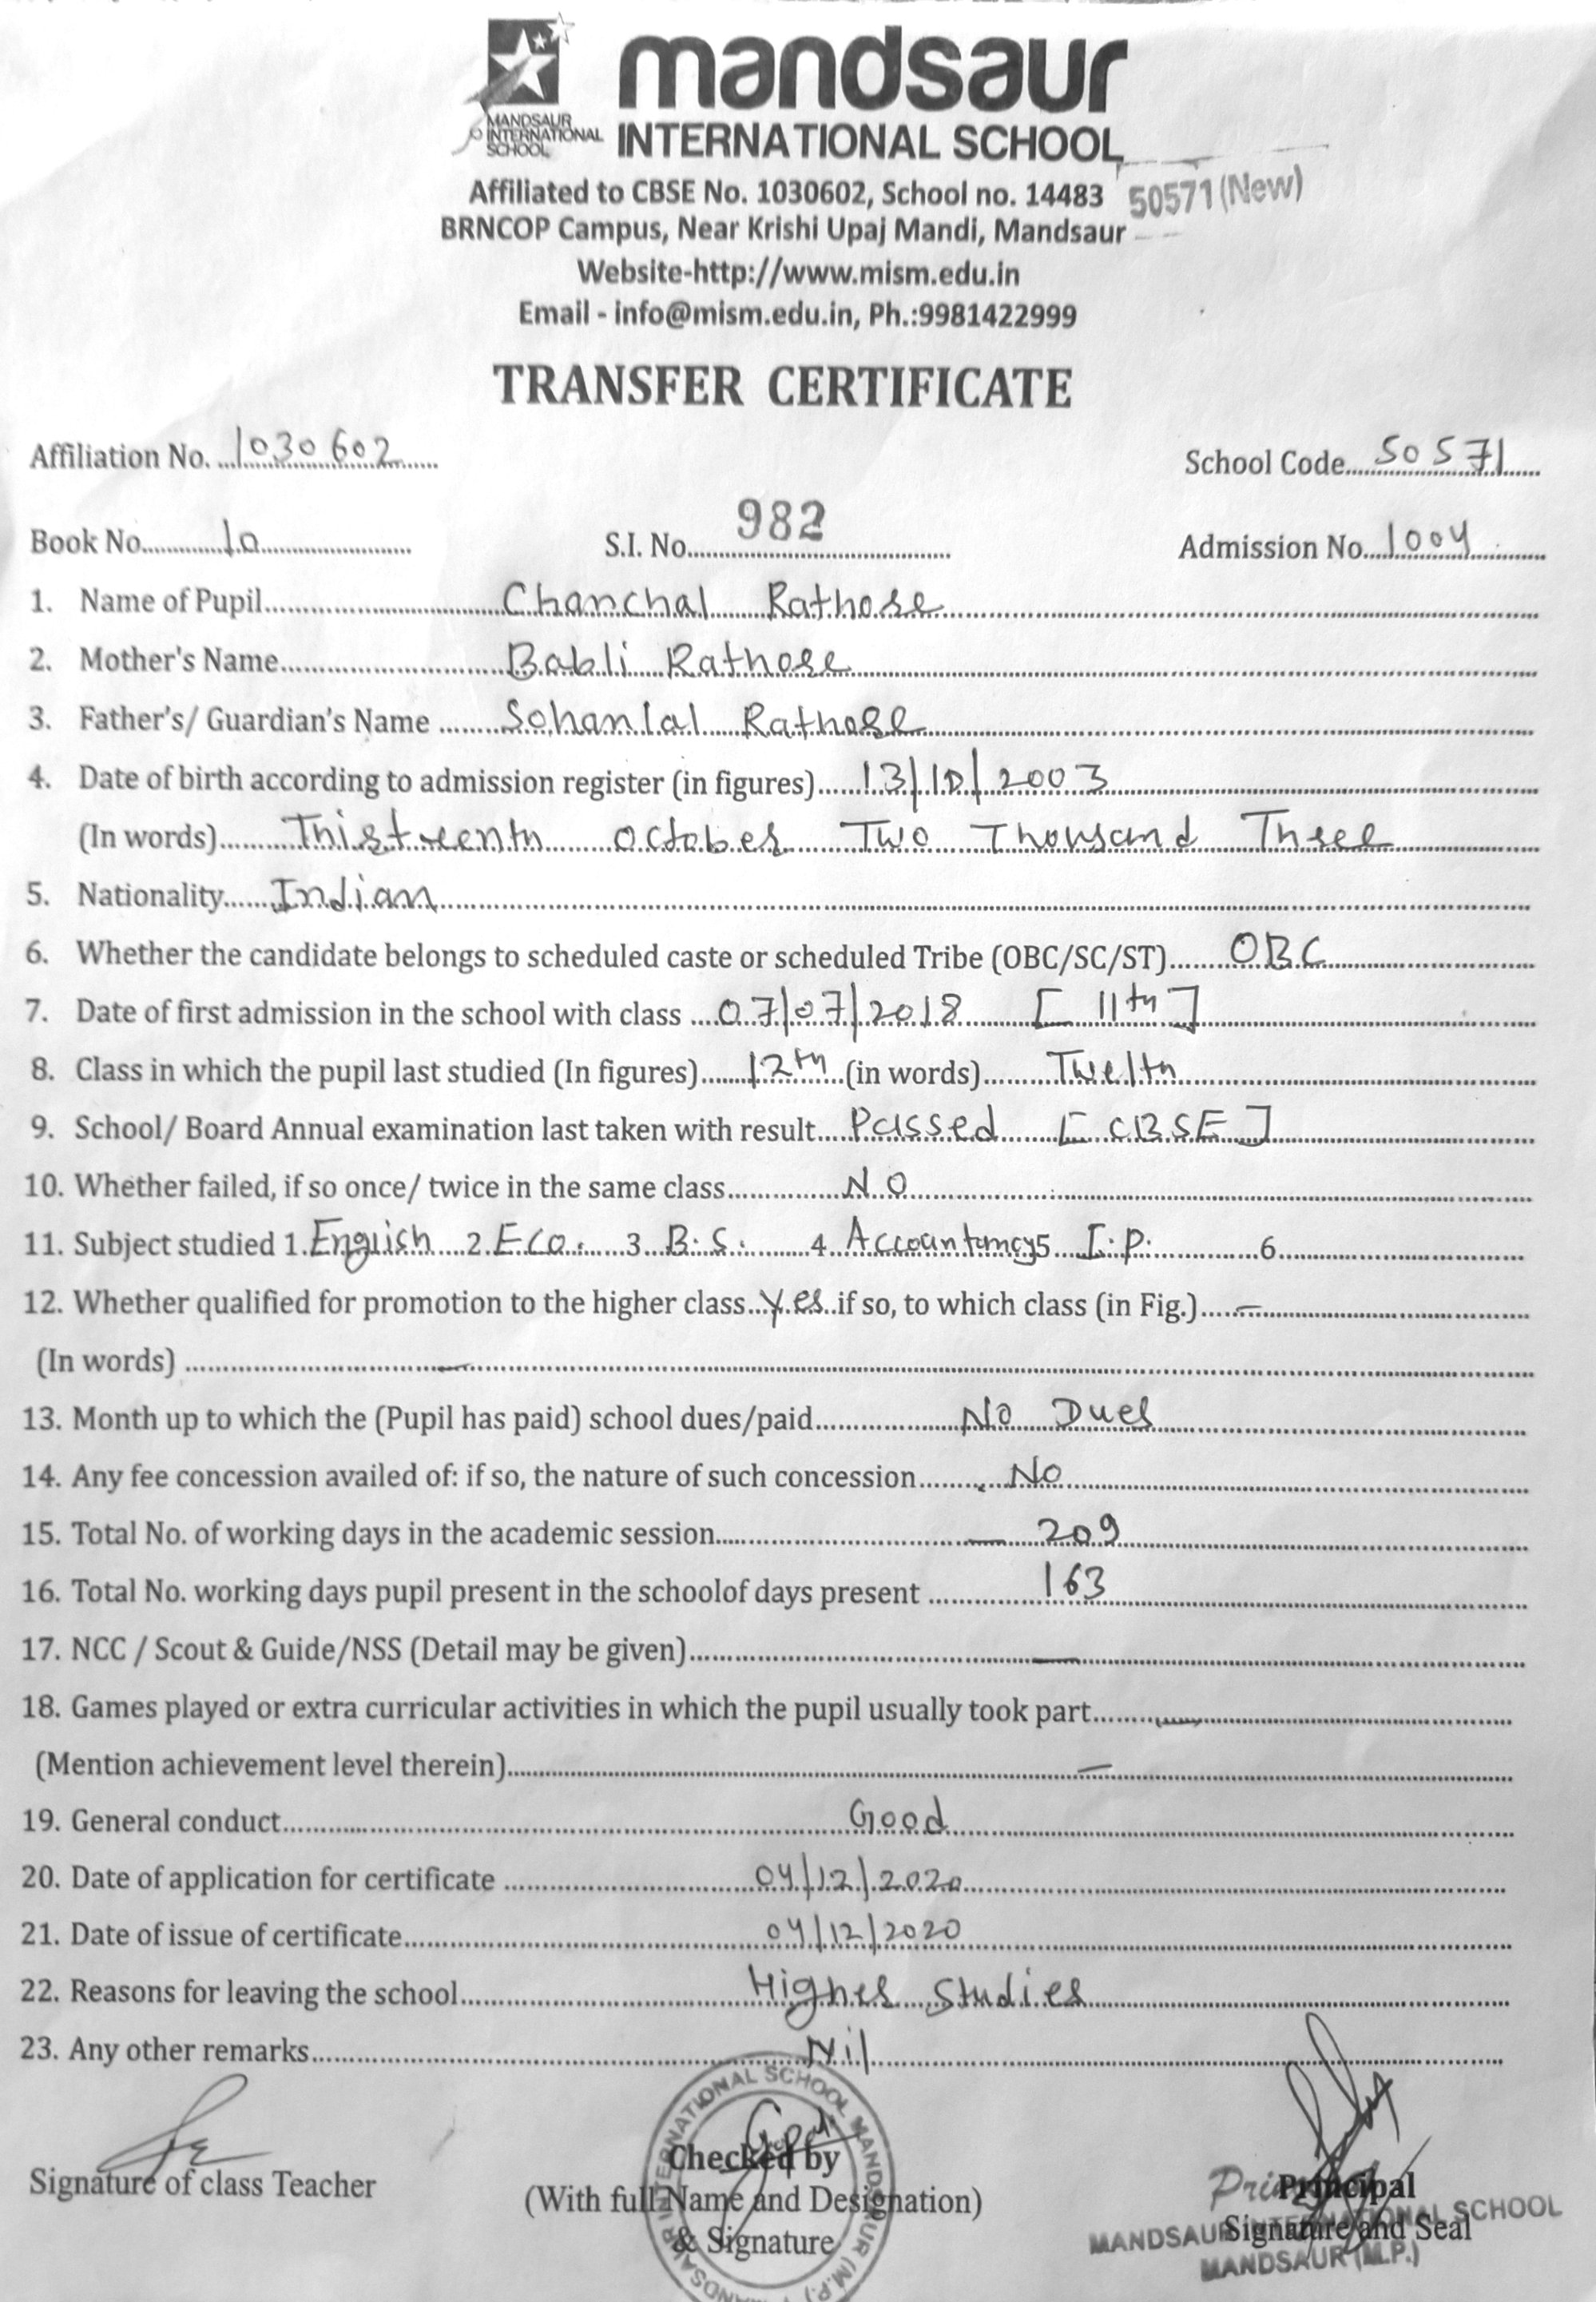 MANDSAUR
INTERNATIONAL
SCHOOL
mandsaur
INTERNATIONAL SCHOOL
Affiliated to CBSE No. 1030602, School no. 14483 50571 (New)
BRNCOP Campus, Near Krishi Upaj Mandi, Mandsaur
Website-http://www.mism.edu.in
Email - info@mism.edu.in, Ph.:9981422999
TRANSFER CERTIFICATE
Affiliation No. 1030602 School Code 50571
Book No. 10 S.I. No. 982 Admission No. 1004
1. Name of Pupil Chanchal Rathore
2. Mother's Name Babli Rathore
3. Father's/ Guardian's Name Sohanlal Rathore
4. Date of birth according to admission register (in figures) 13/10/2003
(In words) Thirteenth October Two Thousand Three
5. Nationality Indian
6. Whether the candidate belongs to scheduled caste or scheduled Tribe (OBC/SC/ST) OBC
7. Date of first admission in the school with class 07/07/2018 [ 11th ]
8. Class in which the pupil last studied (In figures) 12th (in words) Twelth
9. School/ Board Annual examination last taken with result Passed [ CBSE ]
10. Whether failed, if so once/ twice in the same class NO
11. Subject studied 1. English 2. Eco. 3 B.S. 4 Accountancy 5 I.P. 6
12. Whether qualified for promotion to the higher class Yes if so, to which class (in Fig.) —
(In words) —
13. Month up to which the (Pupil has paid) school dues/paid No Dues
14. Any fee concession availed of: if so, the nature of such concession No
15. Total No. of working days in the academic session — 209
16. Total No. working days pupil present in the schoolof days present 163
17. NCC / Scout & Guide/NSS (Detail may be given) —
18. Games played or extra curricular activities in which the pupil usually took part —
(Mention achievement level therein) —
19. General conduct Good
20. Date of application for certificate 04/12/2020
21. Date of issue of certificate 04/12/2020
22. Reasons for leaving the school Higher Studies
23. Any other remarks Nil
Signature of class Teacher
Checked by
(With full Name and Designation)
& Signature
INTERNATIONAL SCHOOL MANDSAUR (M.P.)
Principal
Signature and Seal
Principal
MANDSAUR INTERNATIONAL SCHOOL
MANDSAUR (M.P.)